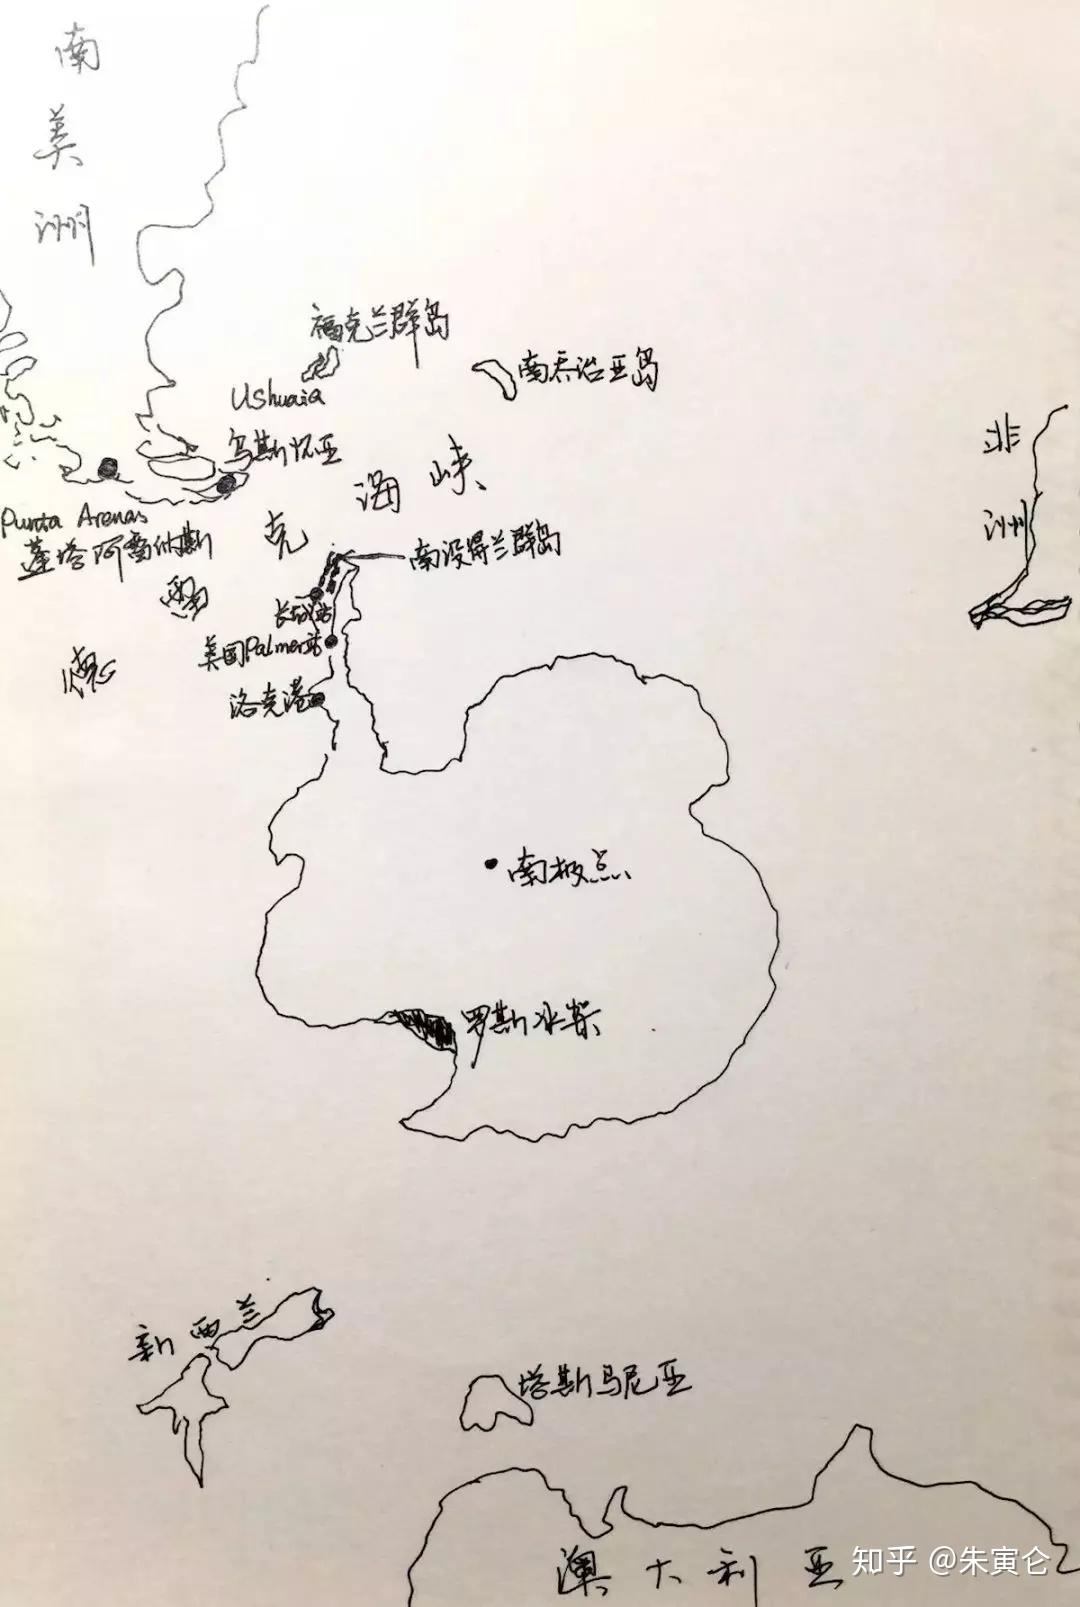 南
美
洲
福克兰群岛
南乔治亚岛
Ushuaia
乌斯怀亚
德雷克海峡
Punta Arenas
蓬塔阿雷纳斯
南设得兰群岛
长城站
美国Palmer站
洛克港
非
洲
南极点
罗斯冰架
新西兰
塔斯马尼亚
澳大利亚
知乎 @朱寅仑